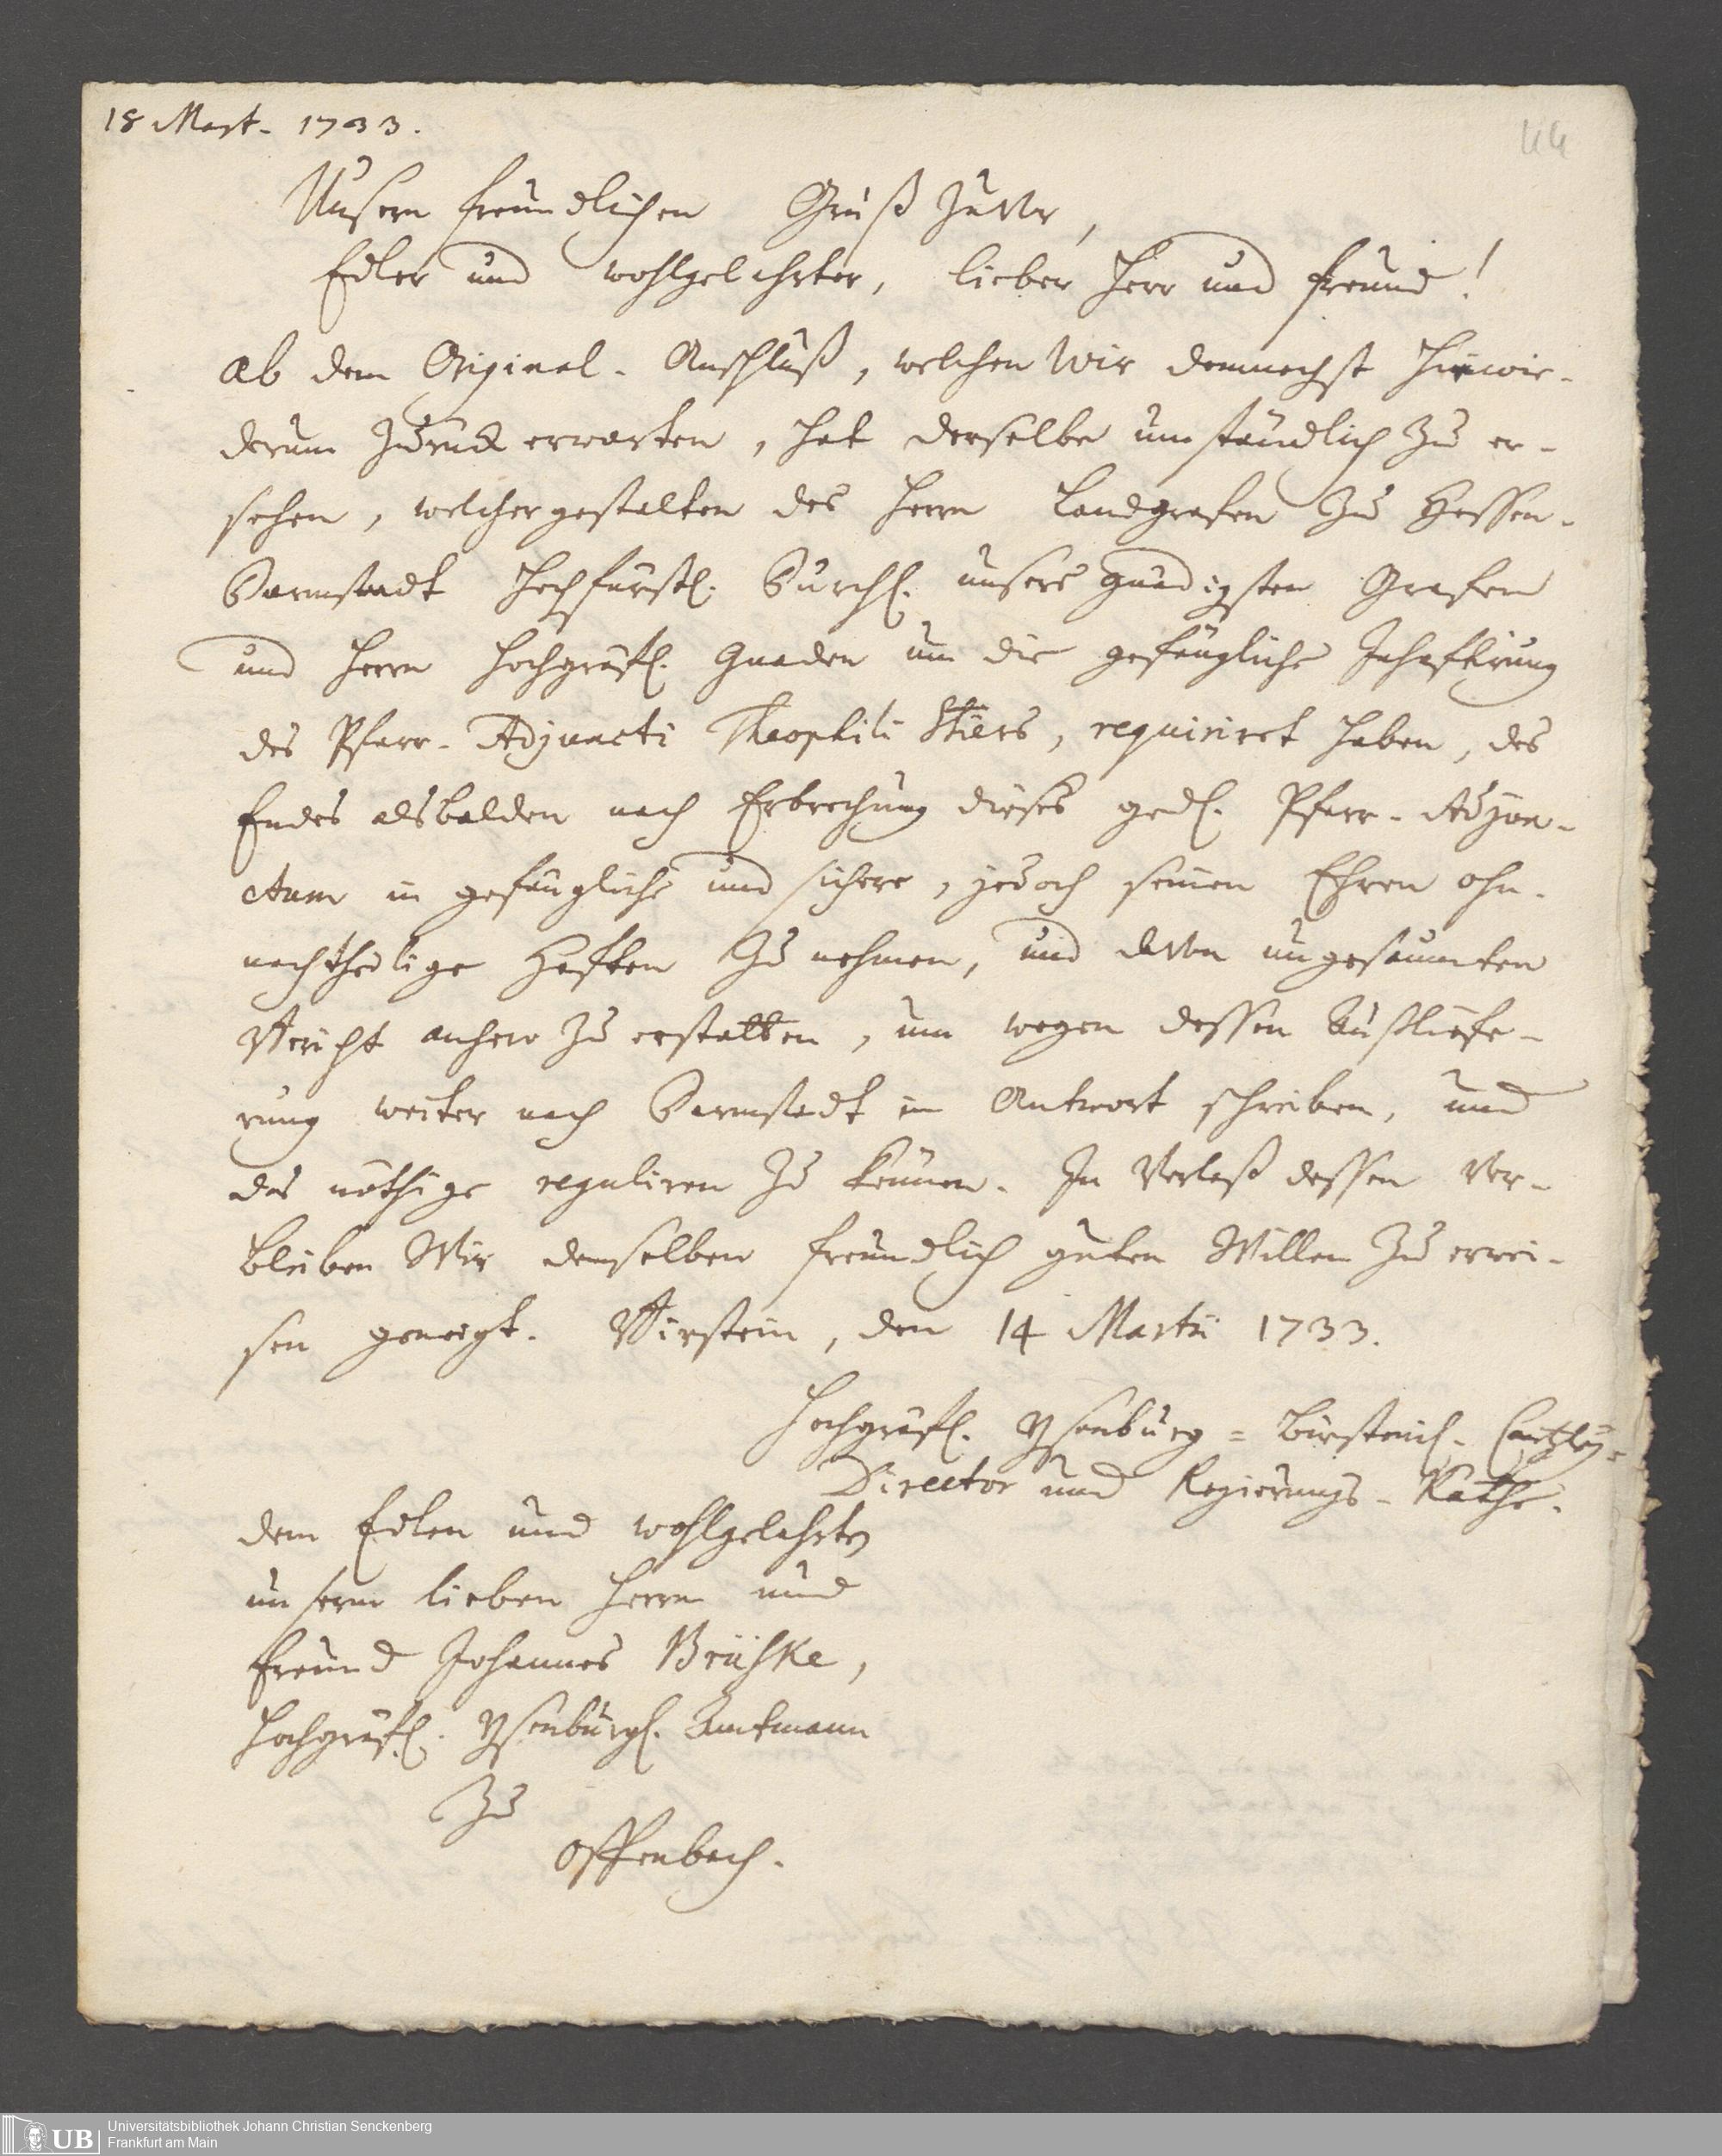 18 Mart. 1733.
44
Unsern freundlichen Gruß zuvor,
Edler und wohlgelehrter, lieber Herr und Freund!
Ab dem Original-Anschluß, welchen Wir demnechst hinwie-
derum zurück erwarten, hat derselbe umständlich zu er-
sehen, welchergestalten des Herrn Landgrafen zu Hessen-
Darmstadt Hochfürstl. Durchl. unsers gnädigsten Grafen
und Herrn Hochgräfl. Gnaden um die gefängliche Inhaftirung
des Pfarr-Adjuncti Theophili Stiers, requiriret haben, des
Endes alsbalden nach Erbrechung dieses ged. Pfarr-Adjun-
ctum in gefängliche und sichere, jedoch seinen Ehren ohn-
nachtheilige Hafften zu nehmen, und davon ungesäumten
Bericht anhero zu erstatten, um wegen dessen Außliefe-
rung weiter nach Darmstadt in Antwort schreiben, und
das nöthige reguliren zu können. In Verlaß dessen ver-
bleiben Wir demselben freundlich guten Willen zu erwei-
sen geneigt. Birstein, den 14 Martii 1733.
Hochgräfl. Ysenburg=Birsteinl. Cantzley-
Director und Regierungs-Räthe.
dem Edlen und wohlgelehrten
unserm lieben Herrn und
Freund Johannes Brühke,
Hochgräfl. Ysenburgl. Amtmann
zu
Offenbach.
UB
Universitätsbibliothek Johann Christian Senckenberg
Frankfurt am Main